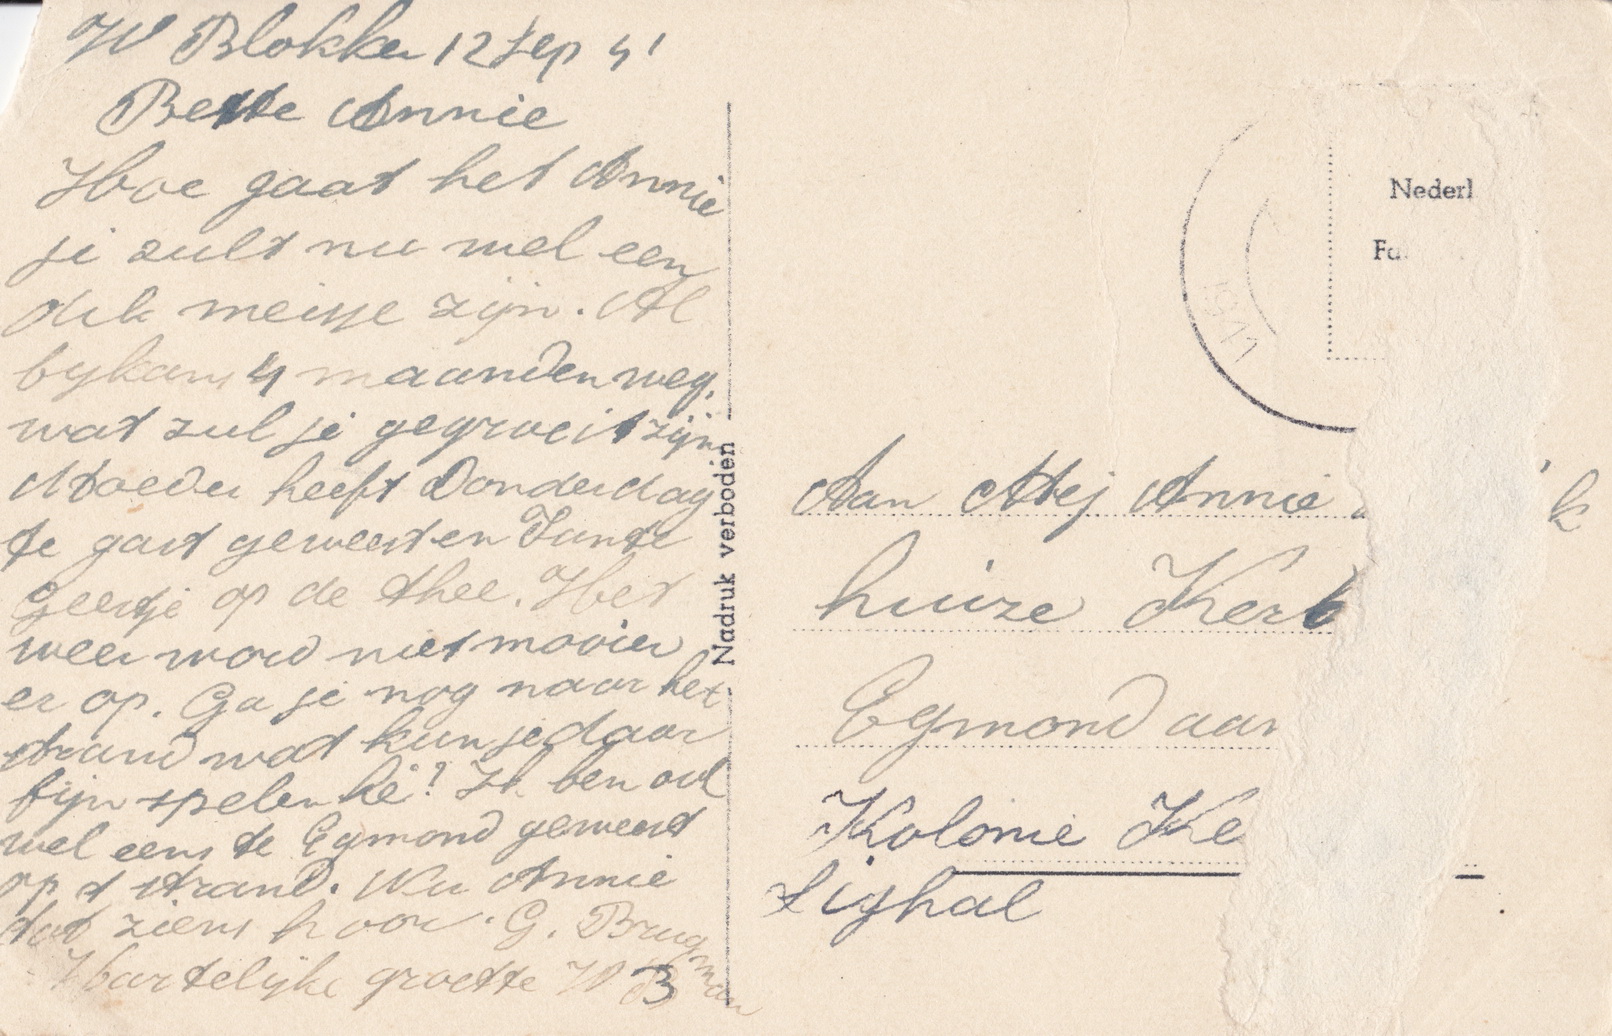 W Blokker 12 Sep 41
Beste Annie
Hoe gaat het Annie
je zult nu wel een
dik meisje zijn. Al
bykans 4 maanden weg,
wat zul je gegroeit zijn
Moeder heeft Donderdag
te gast geweest en Tante
Geertje op de thee. Het
weer word niet mooier
er op. Ga je nog naar het
strand wat kun je daar
fijn spelen hé? Ik ben ook
wel eens te Egmond geweest
op 't strand. Nu Annie
tot ziens hoor. G. Brugman
Hartelijke groette W B
Nadruk verboden
Nederl
1941
Aan Mej Annie
k
huize Kerk
Egmond aan
Kolonie Ke